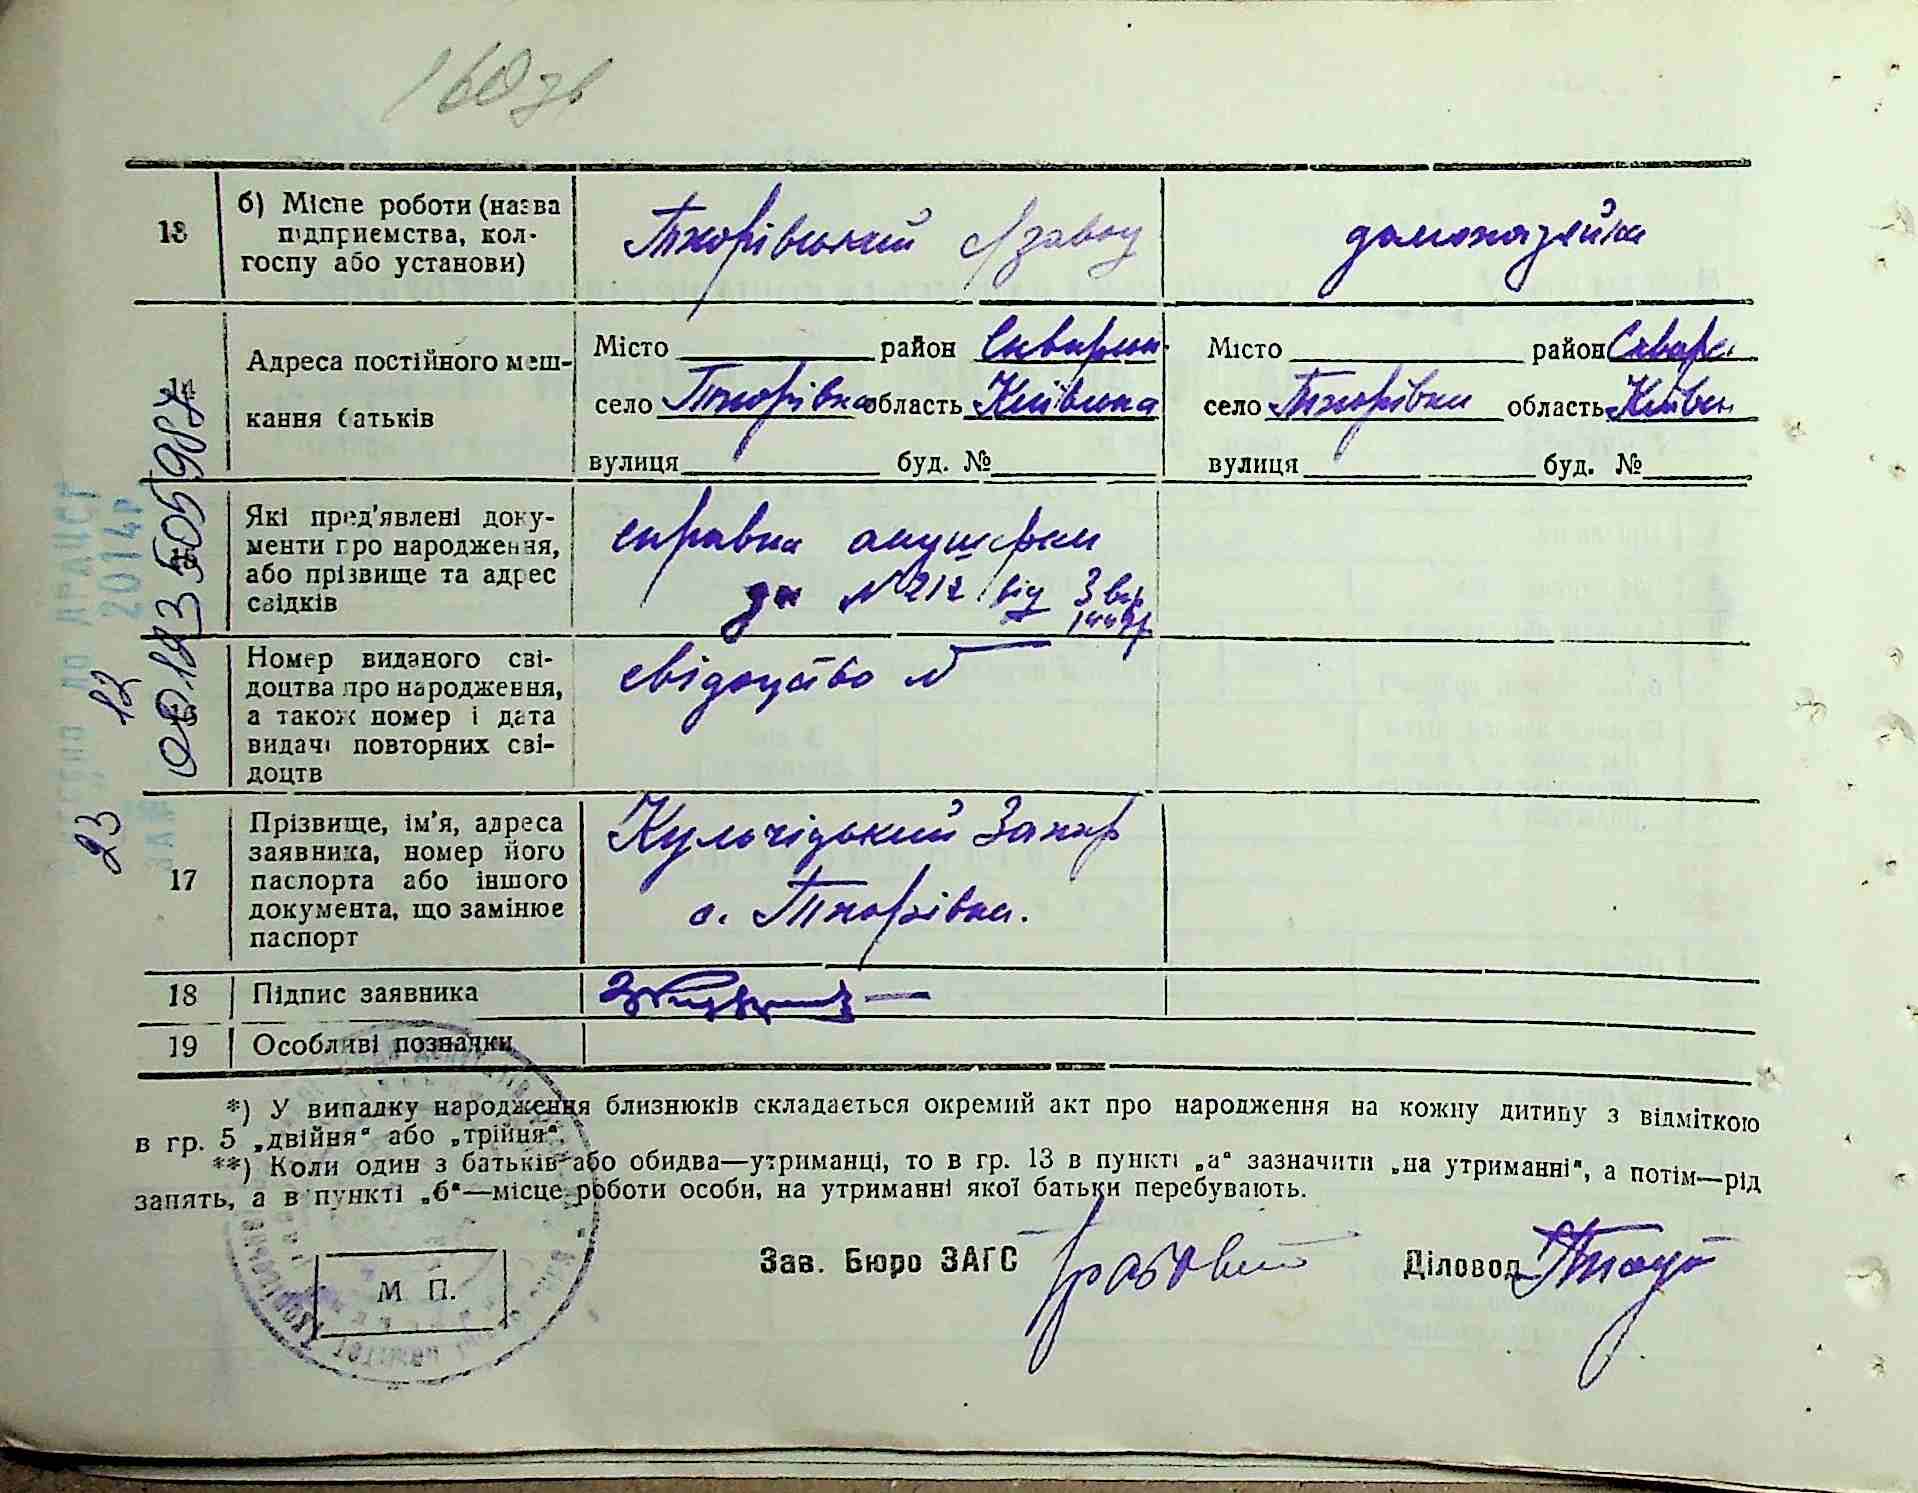 160 зв
13
б) Місце роботи (назва
підприємства, кол-
госпу або установи)
Тхорівський с/завод
домохазяйка
14
Адреса постійного меш-
кання батьків
Місто район Сквирськ
село Тхорівка область Київська
вулиця буд. №
Місто район Сквирс
село Тхорівка область Київськ
вулиця буд. №
Які пред'явлені доку-
менти про народження,
або прізвище та адрес
свідків
справка акушерки
за № 212 від 3 вер
Номер виданого сві-
доцтва про народження,
а також номер і дата
видачі повторних сві-
доцтв
свідоцтво №
17
Прізвище, ім'я, адреса
заявника, номер його
паспорта або іншого
документа, що замінює
паспорт
Кульчіцький Захар
с. Тхорівка.
18
Підпис заявника
19
Особливі позначки
*) У випадку народження близнюків складається окремий акт про народження на кожну дитину з відміткою
в гр. 5 „двійня“ або „трійня“.
**) Коли один з батьків або обидва—утриманці, то в гр. 13 в пункті „а“ зазначити „на утриманні“, а потім—рід
занять, а в пункті „б“—місце роботи особи, на утриманні якої батьки перебувають.
Зав. Бюро ЗАГС
Діловод
М П.
до ДРАЦСГ
2014р
23 12